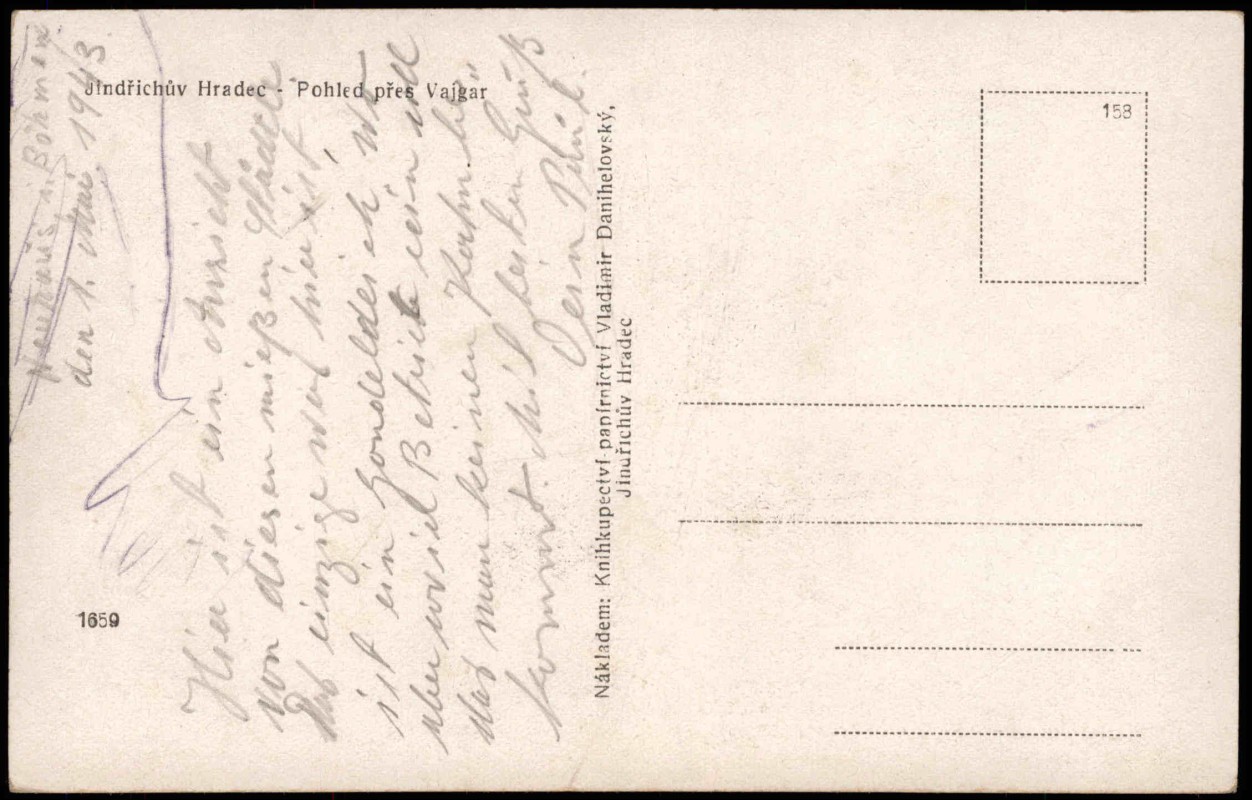 Jindřichův Hradec - Pohled přes Vajgar
158
1659
Nákladem: Knihkupectví-papírnictví Vladimír Danihelovský,
Jindřichův Hradec
Neuhaus i. Böhmen
den 1. Mai 1943
Hier ist ein Ansicht
von diesen mießen Städtle
Das einzige was hier ist
ist ein Gondeldeich wo
aber soviel Betrieb ein
das man keinen Kahn be-
kommt. Mit besten Gruß
Dein